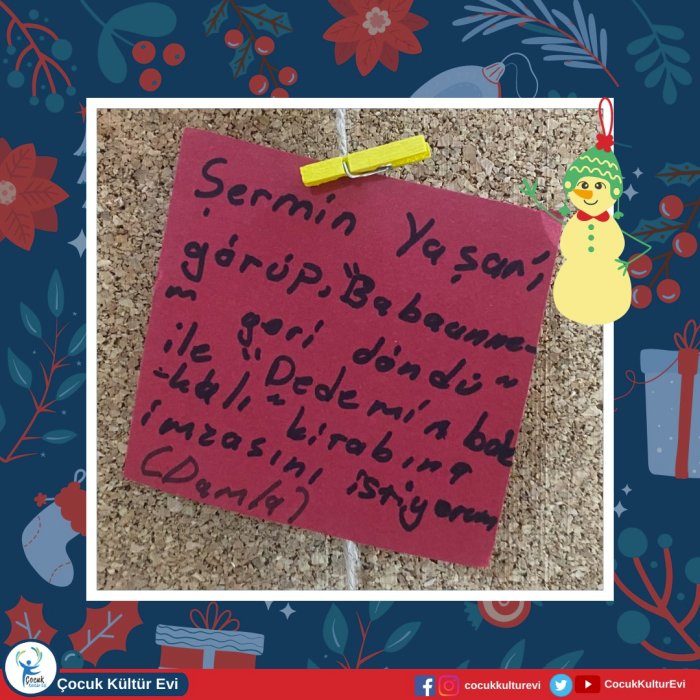 Şermin Yaşar'ı
görüp, "Babaanne-
m geri döndü"
ile "Dedemin bak
-kalı" kitabına
imzasını istiyorum
(Damla)
Çocuk
Kültür Evi
Çocuk Kültür Evi
cocukkulturevi
CocukKulturEvi